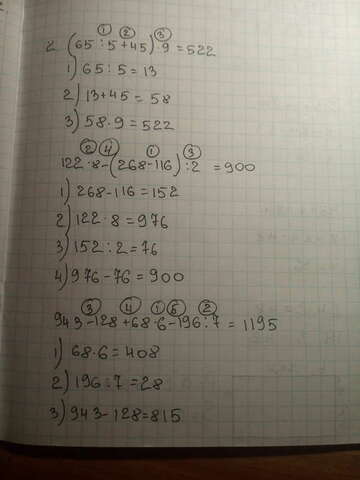 ① ② ③
2. (65:5+45)·9=522
1) 65:5=13
2) 13+45=58
3) 58·9=522
② ④ ① ③
122·8-(268-116):2=900
1) 268-116=152
2) 122·8=976
3) 152:2=76
4) 976-76=900
③ ④ ① ⑤ ②
943-128+68·6-196:7=1195
1) 68·6=408
2) 196:7=28
3) 943-128=815